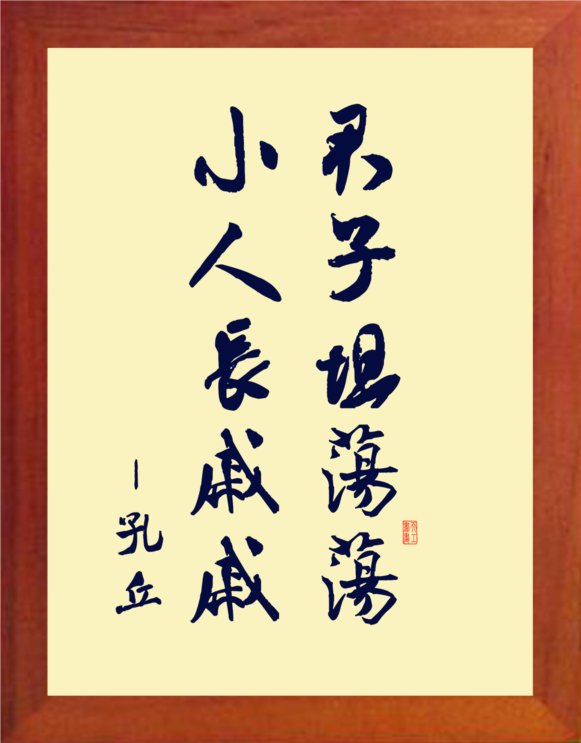 君子坦蕩蕩
小人長戚戚
—孔丘